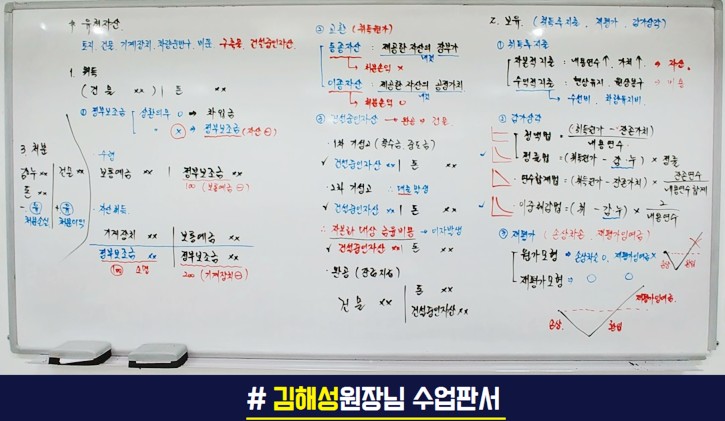 * 유형자산.
토지, 건물, 기계장치, 차량운반구, 비품, 구축물, 건설중인자산.
1. 취득
(건 물 xx) | 돈 xx
① 정부보조금 상환의무 O → 차입금
x → 정부보조금 (자산 ⊖)
수령
보통예금 xx | 정부보조금 xx
100 (보통예금 ⊖)
자산취득.
기계장치 xx | 보통예금 xx
정부보조금 xx | 정부보조금 xx
100 소멸 200 (기계장치 ⊖)
3. 처분
감누 xx | 건물 xx
돈 xx
처분손실 처분이익
② 교환 (취득원가)
동종자산 : 제공한 자산의 장부가
→ 처분손익 x
이종자산 : 제공한 자산의 공정가치
→ 처분손익 O
③ 건설중인자산 → 완공 → 건물
· 1차 기성고 (착수금, 중도금)
✓ 건설중인자산 xx | 돈 xx
· 2차 기성고 : 대출발생
✓ 건설중인자산 xx | 돈 xx
· 자본화 대상 금융비용 → 이자발생
✓ 건설중인자산 xx | 돈 xx
· 완공 (잔금지급)
건 물 xx | 돈 xx
건설중인자산 xx
2. 보유. (취득후지출, 재평가, 감가상각)
① 취득후지출
자본적지출 : 내용연수↑, 가치↑ → 자산.
수익적지출 : 현상유지, 원상복구 → 비용
→ 수선비, 차량유지비.
② 감가상각
정액법 = (취득원가 - 잔존가치) / 내용연수
정률법 = (취득원가 - 감누) × 정률
연수합계법 = (취득원가 - 잔존가치) × 잔존연수 / 내용연수합계
이중체감법 = (취 - 감누) × 2 / 내용연수
③ 재평가 (손상차손, 재평가잉여금)
원가모형 → 손상차손 O, 재평가잉여금 x
재평가모형 → O O
손상 환입
재평가잉여금.
손상. 환입
# 김해성원장님 수업판서